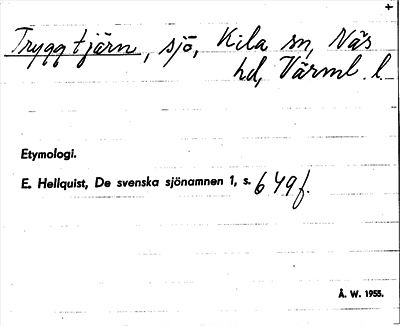 +
Tryggtjärn, sjö, Kila sn, Näs
hd, Värml. l.
Etymologi.
E. Hellquist, De svenska sjönamnen 1, s. 649 f.
Å. W. 1955.